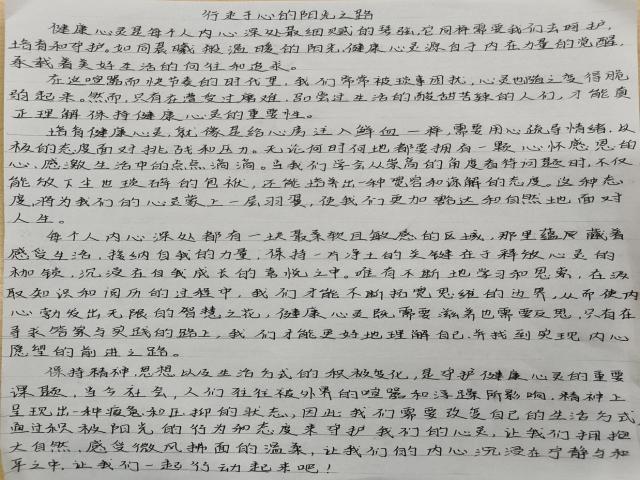 行走于心的阳光之路
健康心灵是每个人内心深处最细腻的琴弦,它同样需要我们去呵护,
培育和守护。如同晨曦般温暖的阳光,健康心灵源自于内在力量的觉醒,
承载着美好生活的向往和追求。
在这喧嚣而快节奏的时代里,我们常常被琐事困扰,心灵也随之变得脆
弱起来。然而,只有在遭受过磨难,品尝过生活的酸甜苦辣的人们,才能真
正理解保持健康心灵的重要性。
培育健康心灵,就像是给心房迁入鲜血一样,需要用心疏导情绪,以
积极的态度面对挑战和压力。无论何时何地都要拥有一颗心怀感恩的
心,感激生活中的点点滴滴。当我们学会从崇高的角度看待问题时,不仅
能放下尘世琐碎的包袱,还能培养出一种宽容和谅解的态度。这种态
度,将为我们的心灵蒙上一层羽翼,使我们更加豁达和自然地面对
人生。
每个人内心深处都有一块最柔软且敏感的区域,那里蕴藏着
感受生活,接纳自我的力量,保持一片净土的关键在于释放心灵的
枷锁,沉浸在自我成长的喜悦之中。唯有不断地学习和思索,在汲
取知识和阅历的过程中,我们才能不断拓宽思维的边界,从而使内
心勃发出无限的智慧之花,健康心灵既需要滋养也需要反思,只有在
寻求答案与实践的路上,我们才能更好地理解自己,并找到实现内心
愿望的前进之路。
保持精神,思想以及生活方式的积极变化,是守护健康心灵的重要
课题,当今社会,人们往往被外界的喧嚣和浮躁所影响,精神上
呈现出一种疲惫和压抑的状态,因此我们需要改变自己的生活方式,
通过积极阳光的行为和态度来守护我们的心灵,让我们拥抱
大自然,感受微风拂面的温柔,让我们的内心沉浸在宁静与和
平之中,让我们一起行动起来吧!